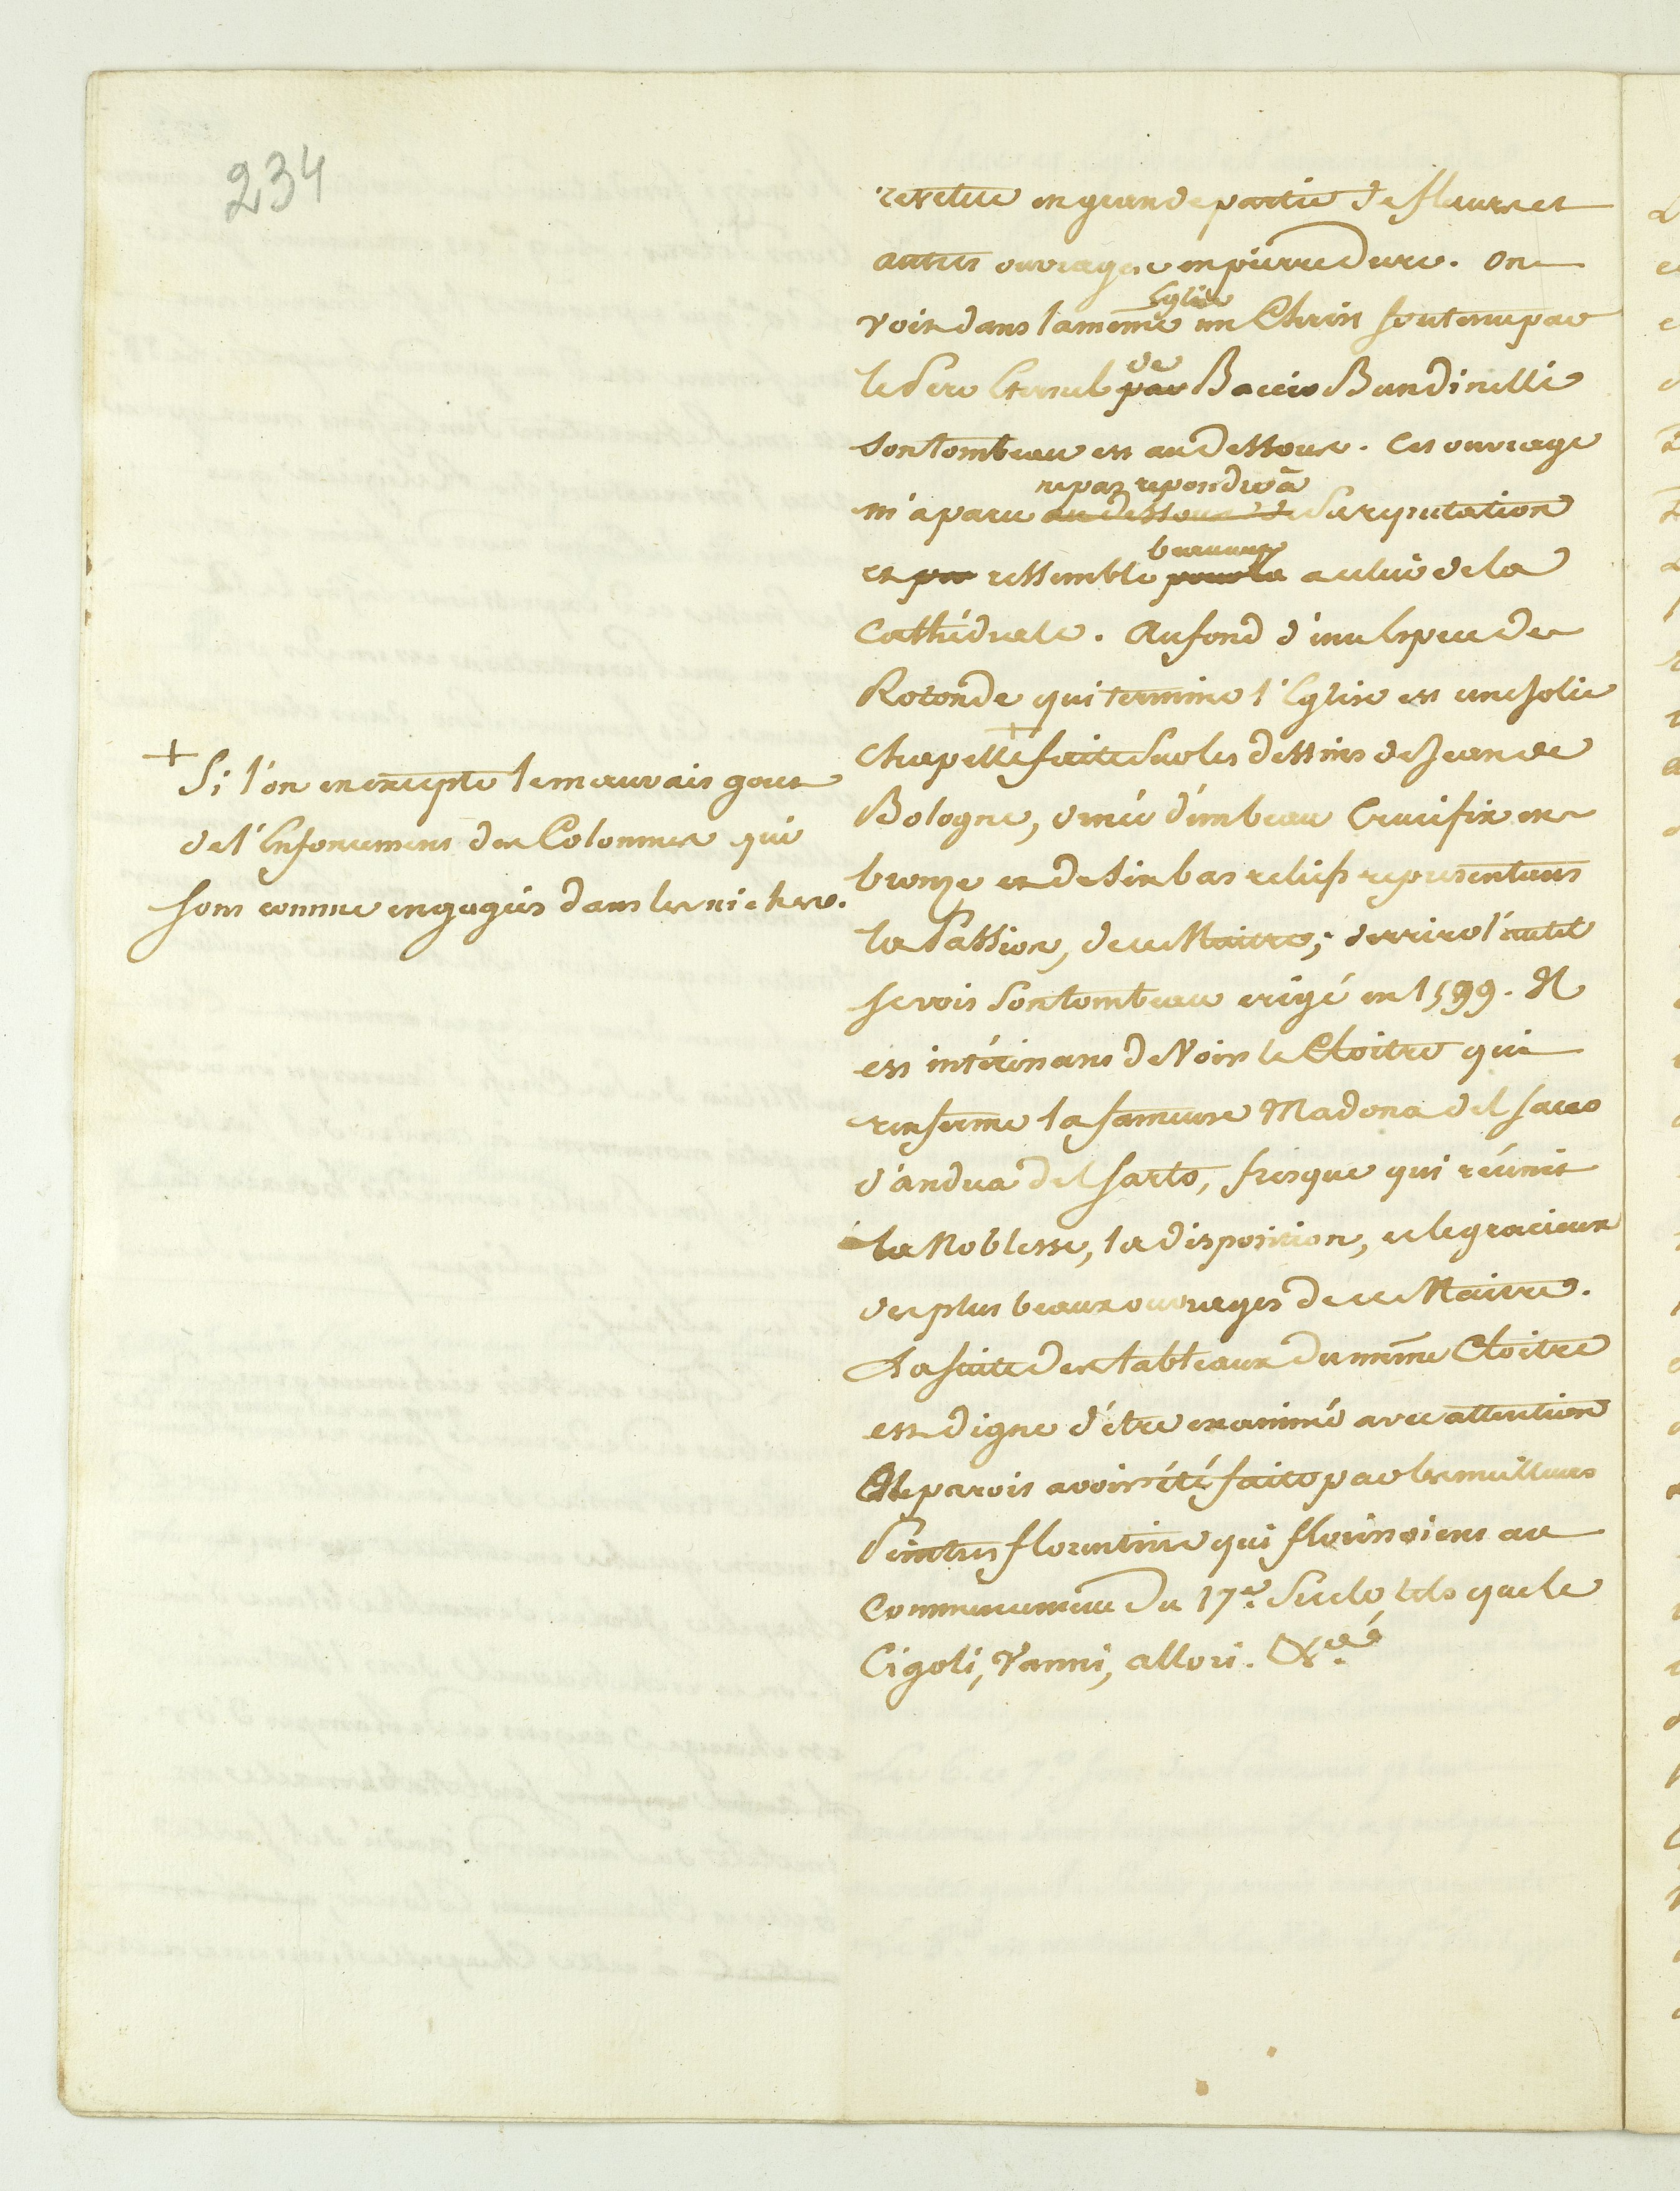 234
revetue en grande partie de fleurs et
autres ouvrages en pierre dure. On
Eglise
voit dans la même un Christ soutenu par
de
le Pere Eternel par Baccio Bandinelli
son tombeau est au dessous. Cet ouvrage
ne pas repondre à
m'a paru au dessous de sa reputation
beaucoup
et ressemble a celui de la
Cathédrale. Au fond d'une Espece de
Rotonde qui termine l'Eglise est une Jolie
+
chapelle faite sur les dessins de Jean de
Bologne, ornée d'un beau Crucifix en
bronze et de six bas reliefs representans
la Passion, de ce Maitre; derriere l'autel
se voit son tombeau erigé en 1599. Il
est intéressant de Voir le Cloitre qui
renferme la fameuse Madona del sacco
d'andrea del sarto, fresque qui réunit
la Noblesse, la disposition, et le gracieux
des plus beaux ouvrages de ce Maitre.
La suite des tableaux du même Cloitre
est digne d'être examiné avec attention
Elle parois avoir été faite par les meilleurs
Peintres florentins qui florissoient au
Commencement du 17e. Siecle, tels que le
Cigoli, Vanni, allori. &ca
+
Si l'on en excepte le mauvais gout
de l'Enfoncement des Colonnes qui
sont comme engagées dans les niches.